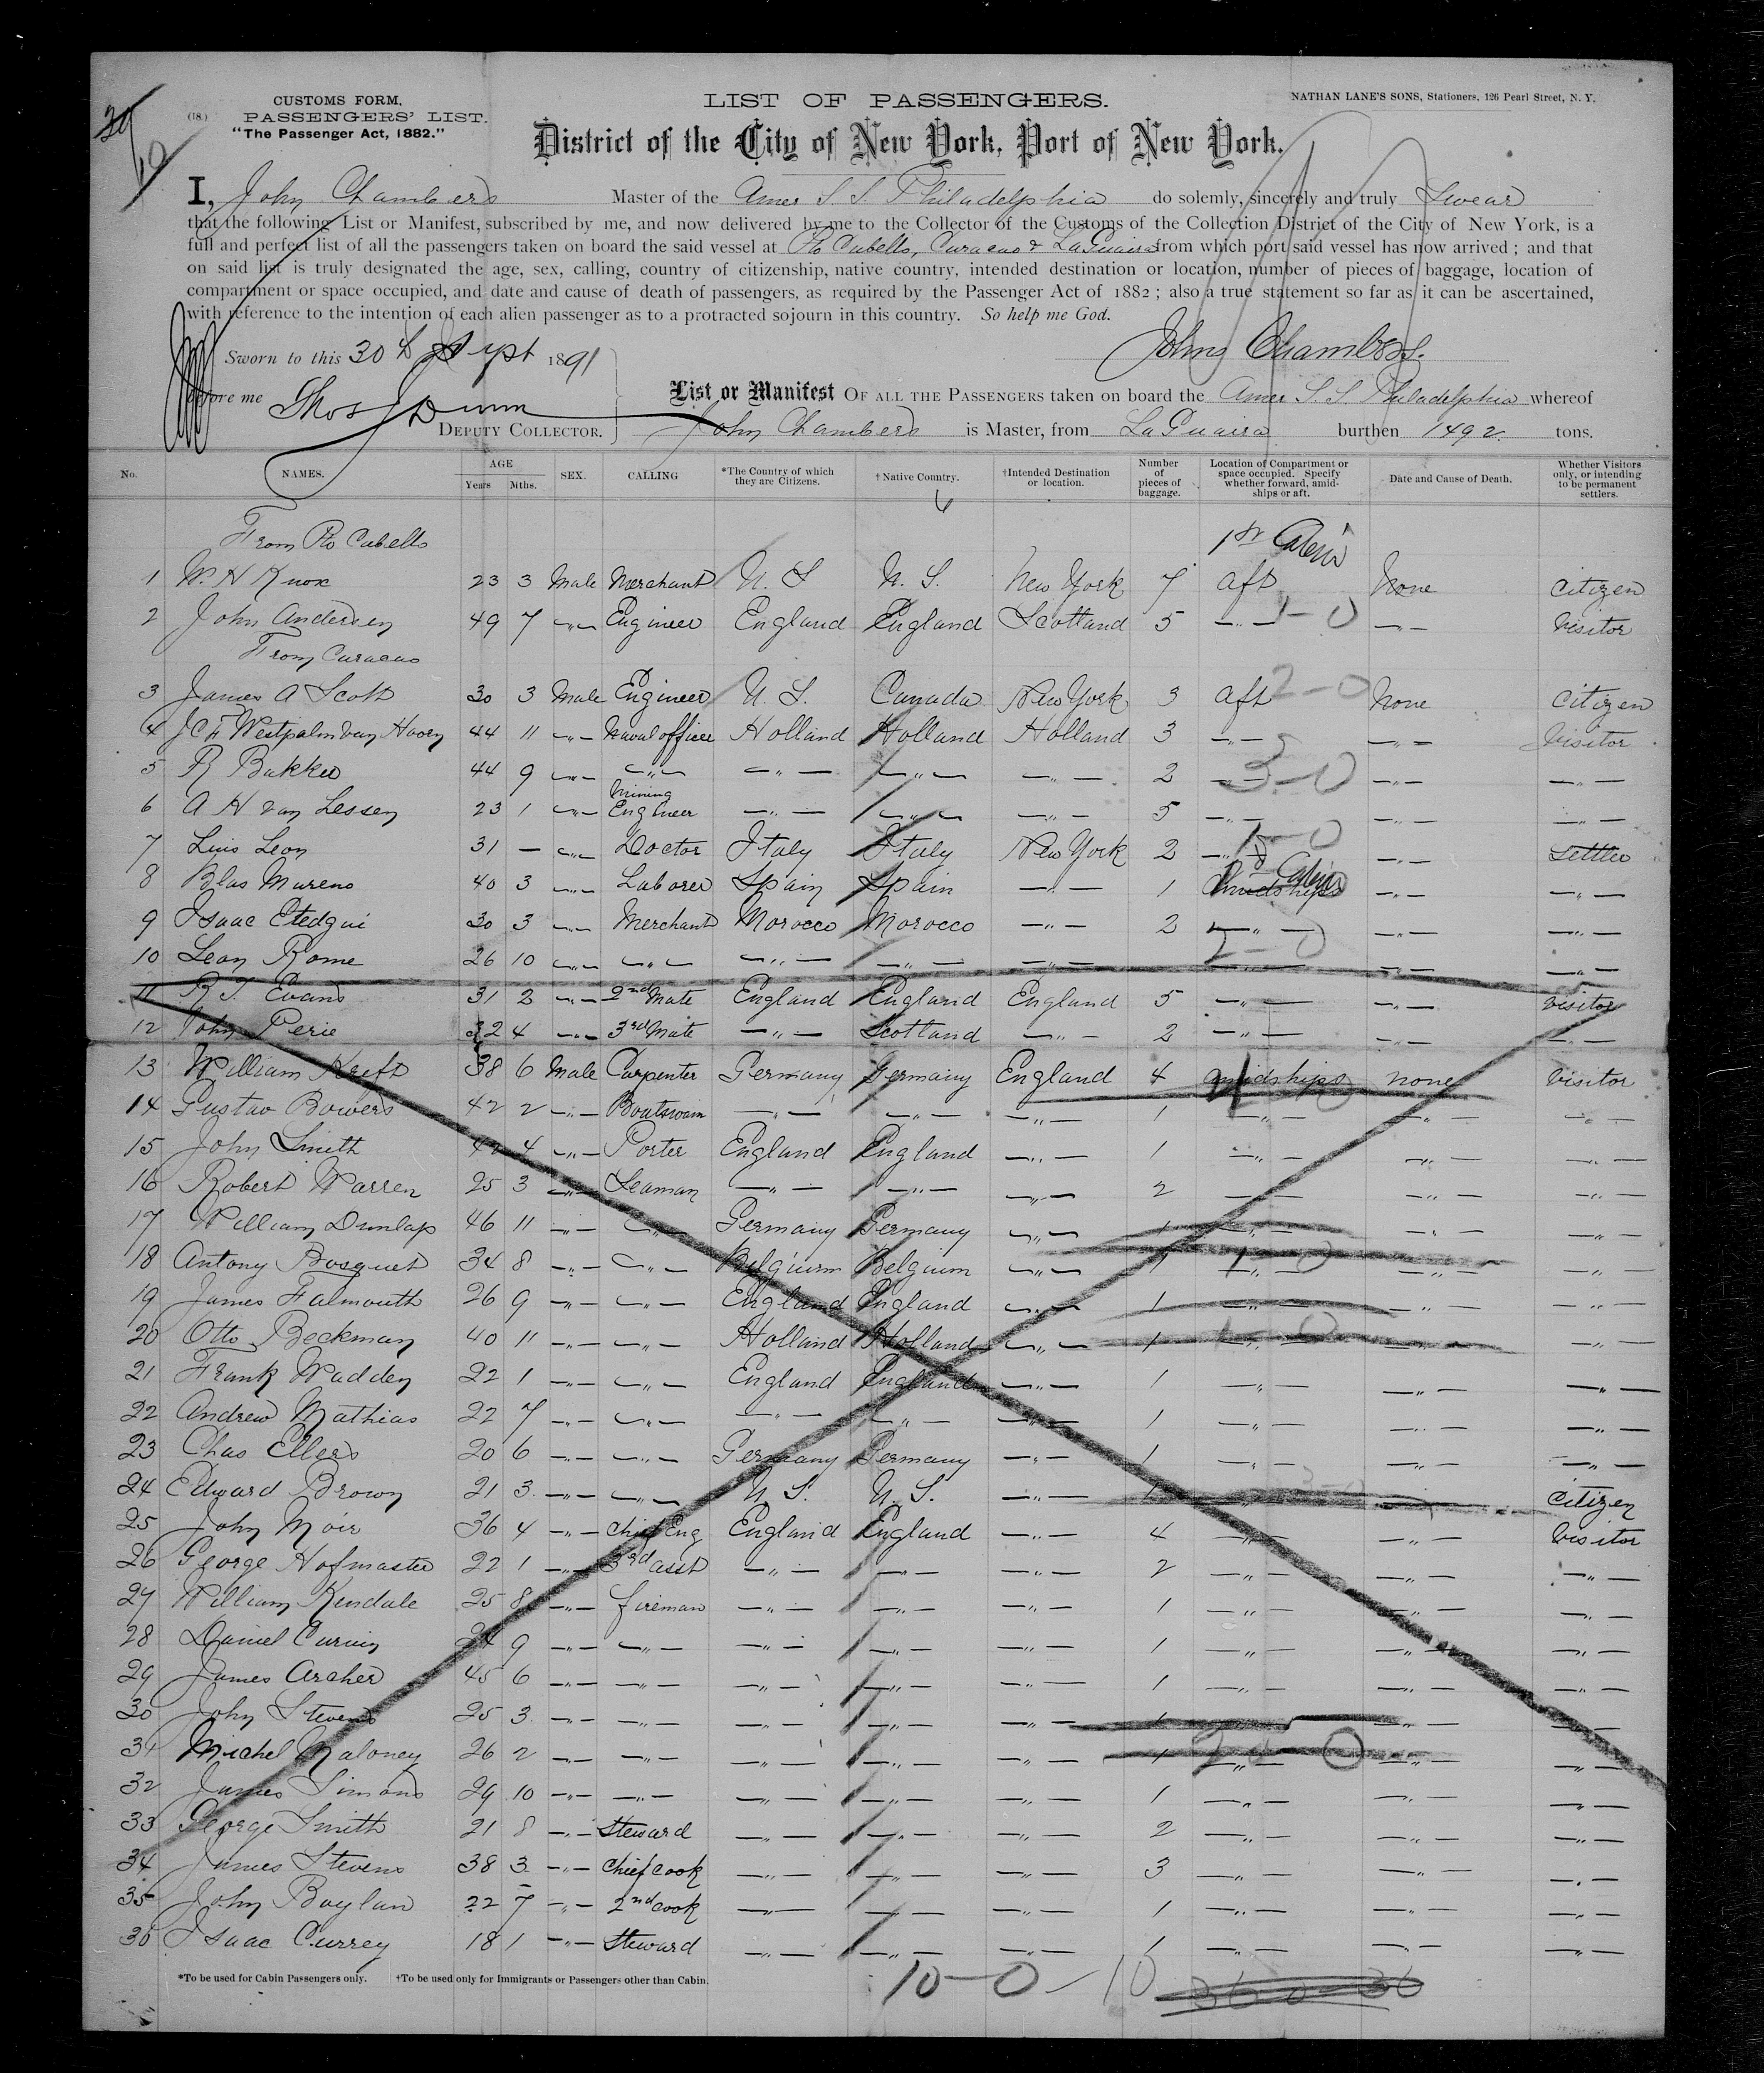 30/10
(18.)
CUSTOMS FORM.
PASSENGERS' LIST.
"The Passenger Act, 1882."
LIST OF PASSENGERS.
NATHAN LANE'S SONS, Stationers, 126 Pearl Street, N. Y.
District of the City of New York, Port of New York.
I, John Chambers Master of the Amer S. S. Philadelphia do solemly, sincerely and truly Swear
that the following List or Manifest, subscribed by me, and now delivered by me to the Collector of the Customs of the Collection District of the City of New York, is a
full and perfect list of all the passengers taken on board the said vessel at Pto Cabello, Curacao & La Guaira from which port said vessel has now arrived; and that
on said list is truly designated the age, sex, calling, country of citizenship, native country, intended destination or location, number of pieces of baggage, location of
compartment or space occupied, and date and cause of death of passengers, as required by the Passenger Act of 1882; also a true statement so far as it can be ascertained,
with reference to the intention of each alien passenger as to a protracted sojourn in this country. So help me God.
Sworn to this 30th Sept 1891
John Chambers.
before me Thos J Dunn
DEPUTY COLLECTOR.
List or Manifest OF ALL THE PASSENGERS taken on board the Amer S. S. Philadelphia whereof
John Chambers is Master, from La Guaira burthen 1492 tons.
No. NAMES. AGE Years Mths. SEX. CALLING *The Country of which they are Citizens. †Native Country. †Intended Destination or location. Number of pieces of baggage. Location of Compartment or space occupied. Specify whether forward, amidships or aft. Date and Cause of Death. Whether Visitors only, or intending to be permanent settlers.
From Pto Cabello 1st Cabin
1 W. H Knox 23 3 Male Merchant U. S U. S. New York 7 aft None Citizen
2 John Andersen 49 7 -"- Engineer England England Scotland 5 -"- 1-0 -"- Visitor
From Curacao
3 James A Scott 30 3 Male Engineer U. S. Canada New York 3 aft 2-0 None Citizen
4 J C F Westpalm van Hoorn 44 11 -"- Naval officer Holland Holland Holland 3 -"- -"- Visitor
5 R Bakker 44 9 -"- -"- -"- -"- -"- 2 -"- 3-0 -"- -"-
6 A H van Lessen 23 1 -"- Mining Engineer -"- -"- -"- 5 -"- -"- -"-
7 Luis Leon 31 - -"- Doctor Italy Italy New York 2 -"- 1-0 -"- Settler
8 Blas Moreno 40 3 -"- Laborer Spain Spain -"- 1 amidships Cabin -"- -"-
9 Isaac Etedgui 30 3 -"- Merchant Morocco Morocco -"- 2 -"- -"- -"-
10 Leon Rome 26 10 -"- -"- -"- -"- -"- -"- 2-0 -"- -"-
11 R T. Evans 31 2 -"- 2nd Mate England England England 5 -"- -"- Visitor
12 John Perie 32 4 -"- 3rd Mate -"- Scotland -"- 2 -"- -"- -"-
13 William Kreft 38 6 Male Carpenter Germany Germany England 4 amidships none Visitor
14 Gustav Bowers 42 2 -"- Boatswain -"- -"- -"- 1 -"- -"- -"-
15 John Smith 42 4 -"- Porter England England -"- 1 -"- -"- -"-
16 Robert Warren 25 3 -"- Seaman -"- -"- -"- 2 -"- -"- -"-
17 William Dunlap 46 11 -"- -"- Germany Germany -"- 1 -"- -"- -"-
18 Antony Bosquet 34 8 -"- -"- Belguium Belguim -"- 1 -"- 1-0 -"- -"-
19 James Falmouth 26 9 -"- -"- England England -"- 1 -"- -"- -"-
20 Otto Beckman 40 11 -"- -"- Holland Holland -"- 1 -"- 1-0 -"- -"-
21 Frank Madden 22 1 -"- -"- England England -"- 1 -"- -"- -"-
22 Andrew Mathias 22 7 -"- -"- -"- -"- -"- 1 -"- -"- -"-
23 Chas Ellers 20 6 -"- -"- Germany Germany -"- 1 -"- -"- -"-
24 Edward Brown 21 3 -"- -"- U. S. U. S. -"- 1 -"- -"- Citizen
25 John Moir 36 4 -"- Chief Eng England England -"- 4 -"- -"- Visitor
26 George Hofmaster 22 1 -"- 3rd asst -"- -"- -"- 2 -"- -"- -"-
27 William Kendale 25 8 -"- fireman -"- -"- -"- 1 -"- -"- -"-
28 Daniel 24 9 -"- -"- -"- -"- -"- 1 -"- -"- -"-
29 James Archer 45 6 -"- -"- -"- -"- -"- 1 -"- -"- -"-
30 John Stevens 25 3 -"- -"- -"- -"- -"- 1 -"- -"- -"-
31 Michel Maloney 26 2 -"- -"- -"- -"- -"- 1 -"- -"- -"-
32 James Simons 29 10 -"- -"- -"- -"- -"- 1 -"- -"- -"-
33 George Smith 21 8 -"- Steward -"- -"- -"- 2 -"- -"- -"-
34 James Stevens 38 3 -"- Chief Cook -"- -"- -"- 3 -"- -"- -"-
35 John Boylan 22 7 -"- 2nd cook -"- -"- -"- 1 -"- -"- -"-
36 Isaac Currey 18 1 -"- Steward -"- -"- -"- 1 -"- -"- -"-
*To be used for Cabin Passengers only. †To be used only for Immigrants or Passengers other than Cabin.
10-0-10 36 0 36